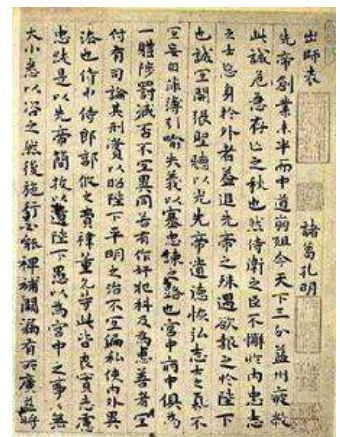 出師表 諸葛孔明
先帝創業未半而中道崩殂今天下三分益州疲敝
此誠危急存亡之秋也然侍衛之臣不懈於內忠志
之士忘身於外者蓋追先帝之殊遇欲報之於陛下
也誠宜開張聖聽以光先帝遺德恢弘志士之氣不
宜妄自菲薄引喻失義以塞忠諫之路也宮中府中俱為
一體陟罰臧否不宜異同若有作奸犯科及為忠善者宜
付有司論其刑賞以昭陛下平明之治不宜偏私使內外異
法也侍中侍郎郭攸之費禕董允等此皆良實志慮
忠純是以先帝簡拔以遺陛下愚以為宮中之事事無
大小悉以咨之然後施行必能裨補闕漏有所廣益將